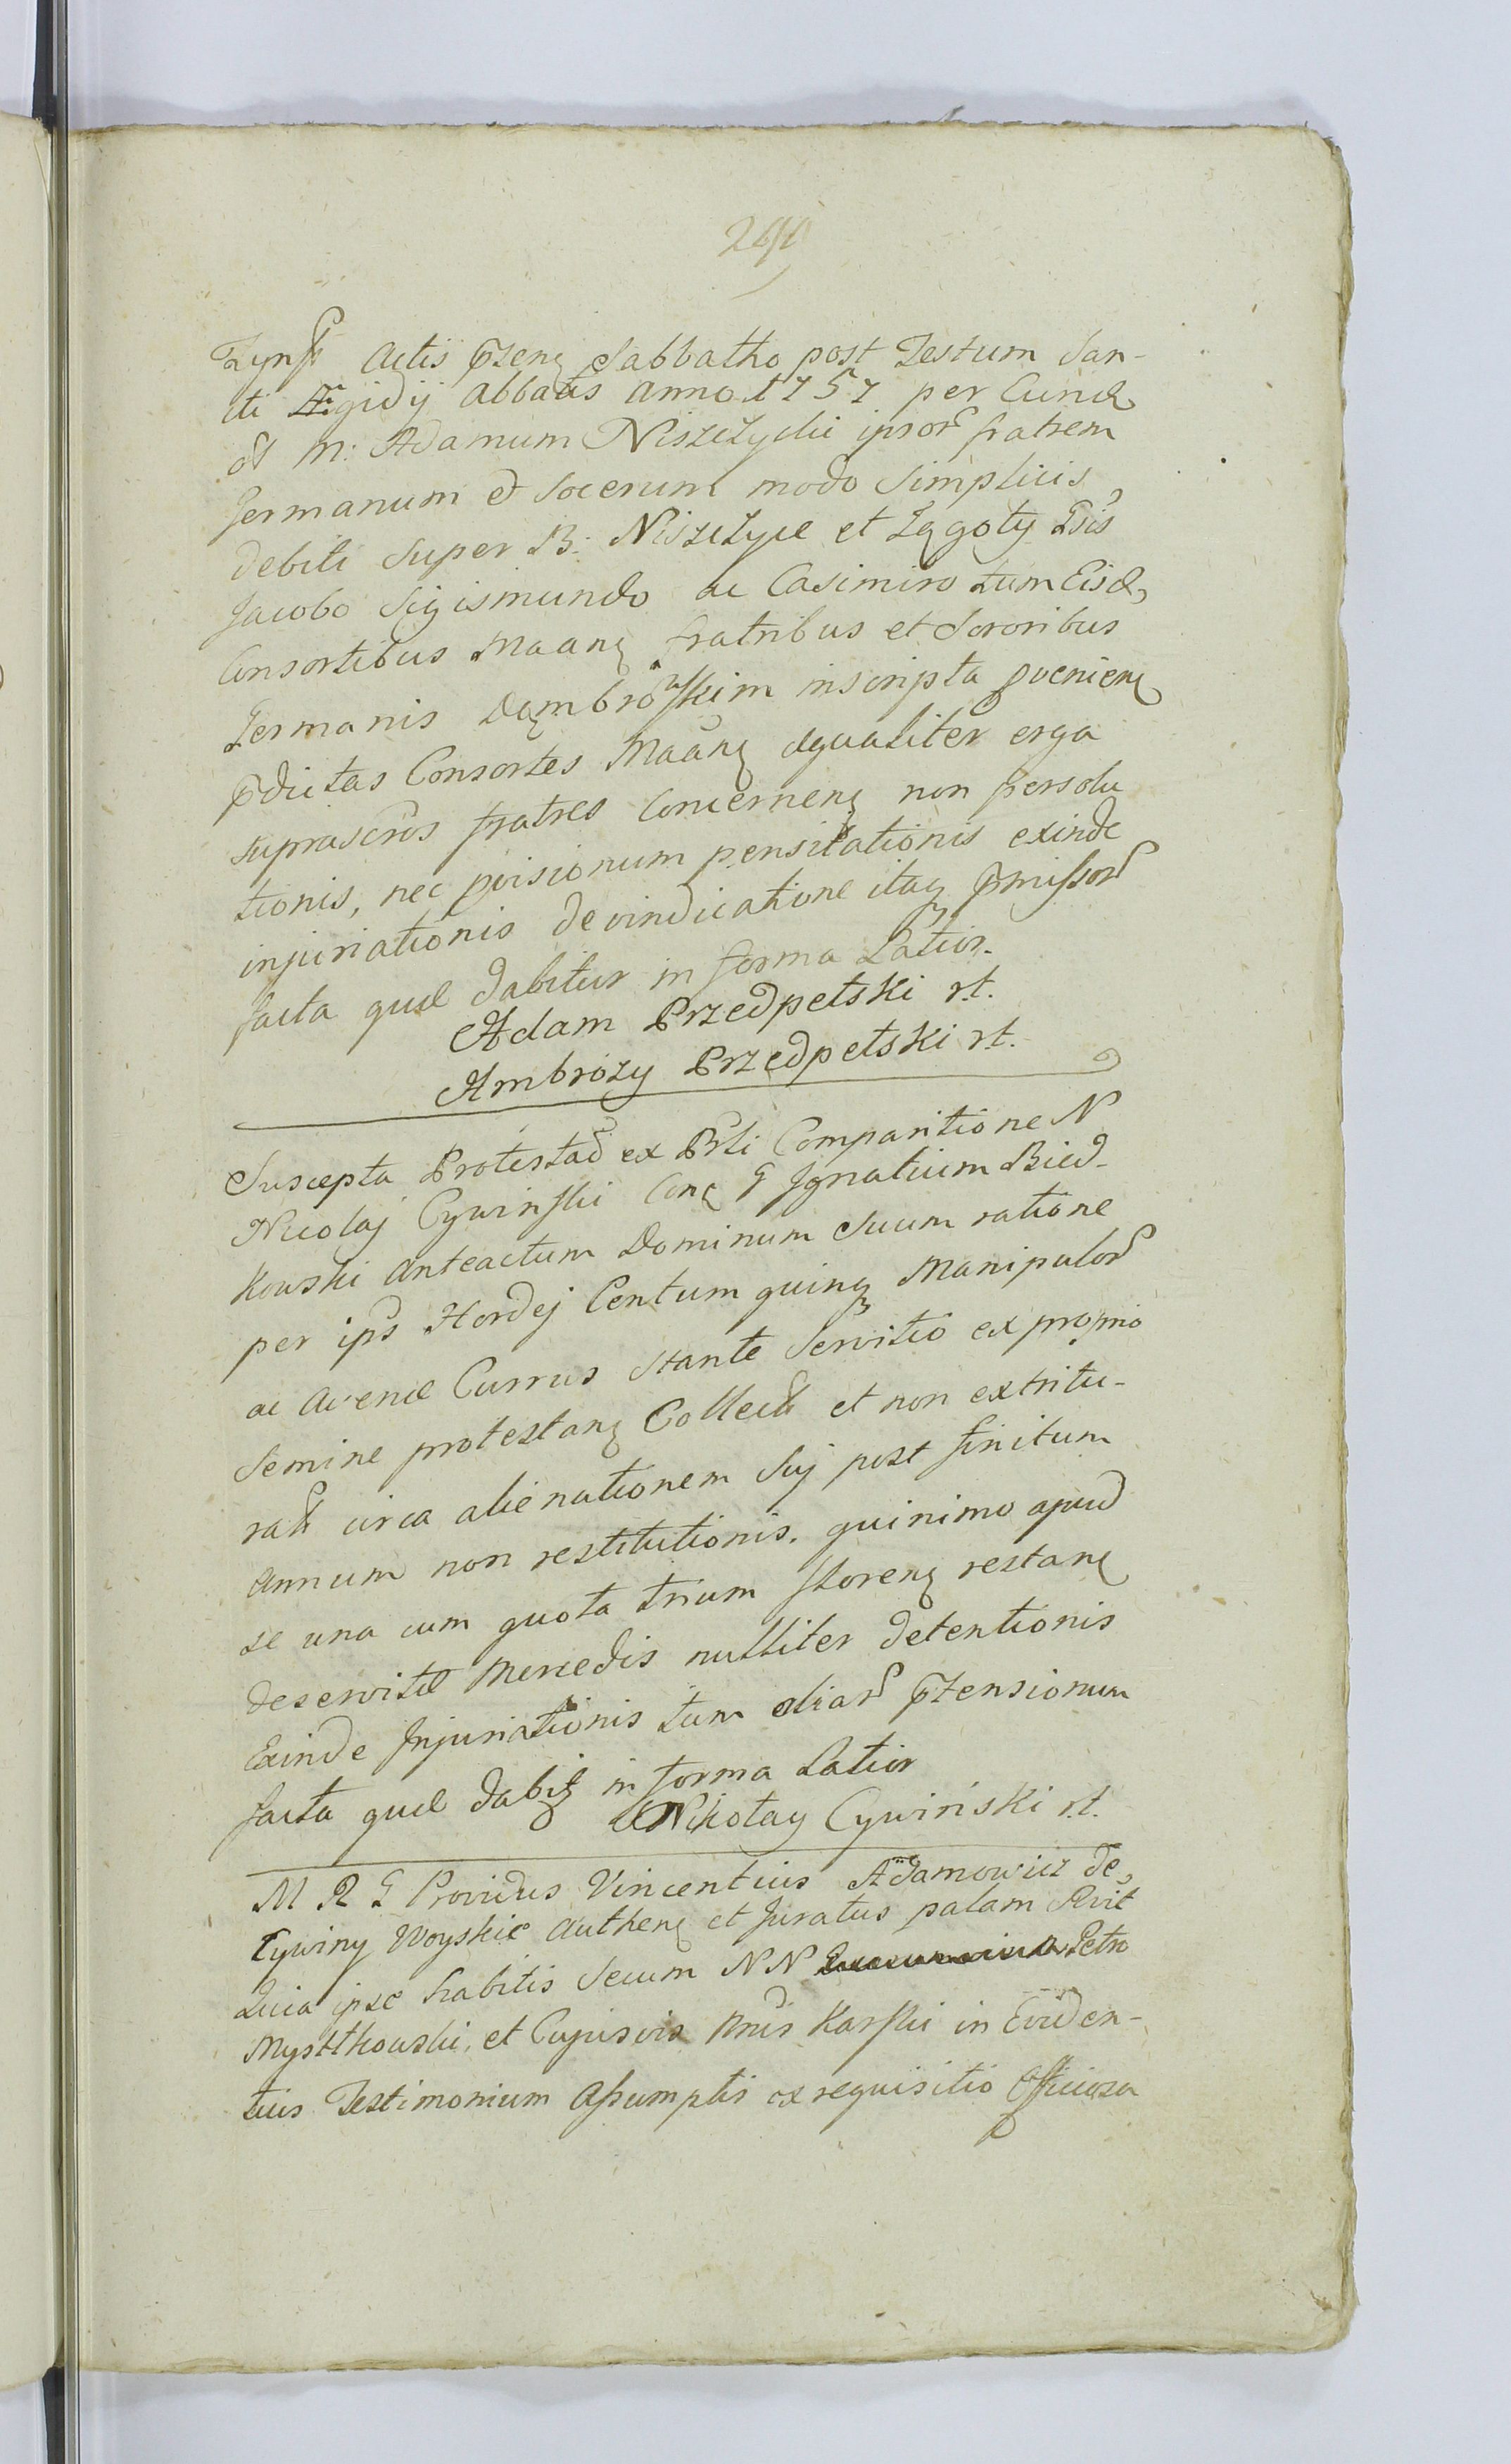 Actis Sabbatho post Festum San-
cti Ægidÿ Abbatis Anno 1757 per Eund
M: Adamum Niszczycki ipsor fratrem
germanum et Socerum modo Simplicis
debiti super B: Niszczyce et Łągoty
Jacobo Sigismundo ac Casimiro tum Eisd
Consortibus fratribus et Sororibus
germanis Dąmbrowskim inscripta
pdictas Consortes æqualiter erga
suprascros fratres Concernen non persolu
tionis, nec pvisionum pensitationis exinde
injuriationis devindicatione itaq pmissor
facta quæ dabitur in forma Latior.
Adam Przedpełski rt.
Ambrozy Przedpełski rt.
Suscepta Protestao ex Prli Comparitione N
Nicolaj Cywinski Con G Ignatium Bied-
kowski Anteactum Dominum Suum ratione
per ips Hordej Centum quinq Manipulor
ac Avenæ Currus stante Servitio ex proprio
Semine protestan Collect et non extritu-
rat circa alienationem Suj post finitum
Annum non restitutionis. quinimo apud
se una cum quota trium floren restan
deservitæ Mercedis nulliter detentionis
Exinde Injuriationis tum aliar ptensionum
facta quæ dabit in forma Latior
Mikołay Cywiński rt.
M R G Providus Vincentius Adamowicz de
Cywiny Woyskie Authen et Juratus palam
Quia ipse habitis Secum N N Petro
et Karski in Eviden-
tius Testimonium Assumptis ex requisitio Officiosa